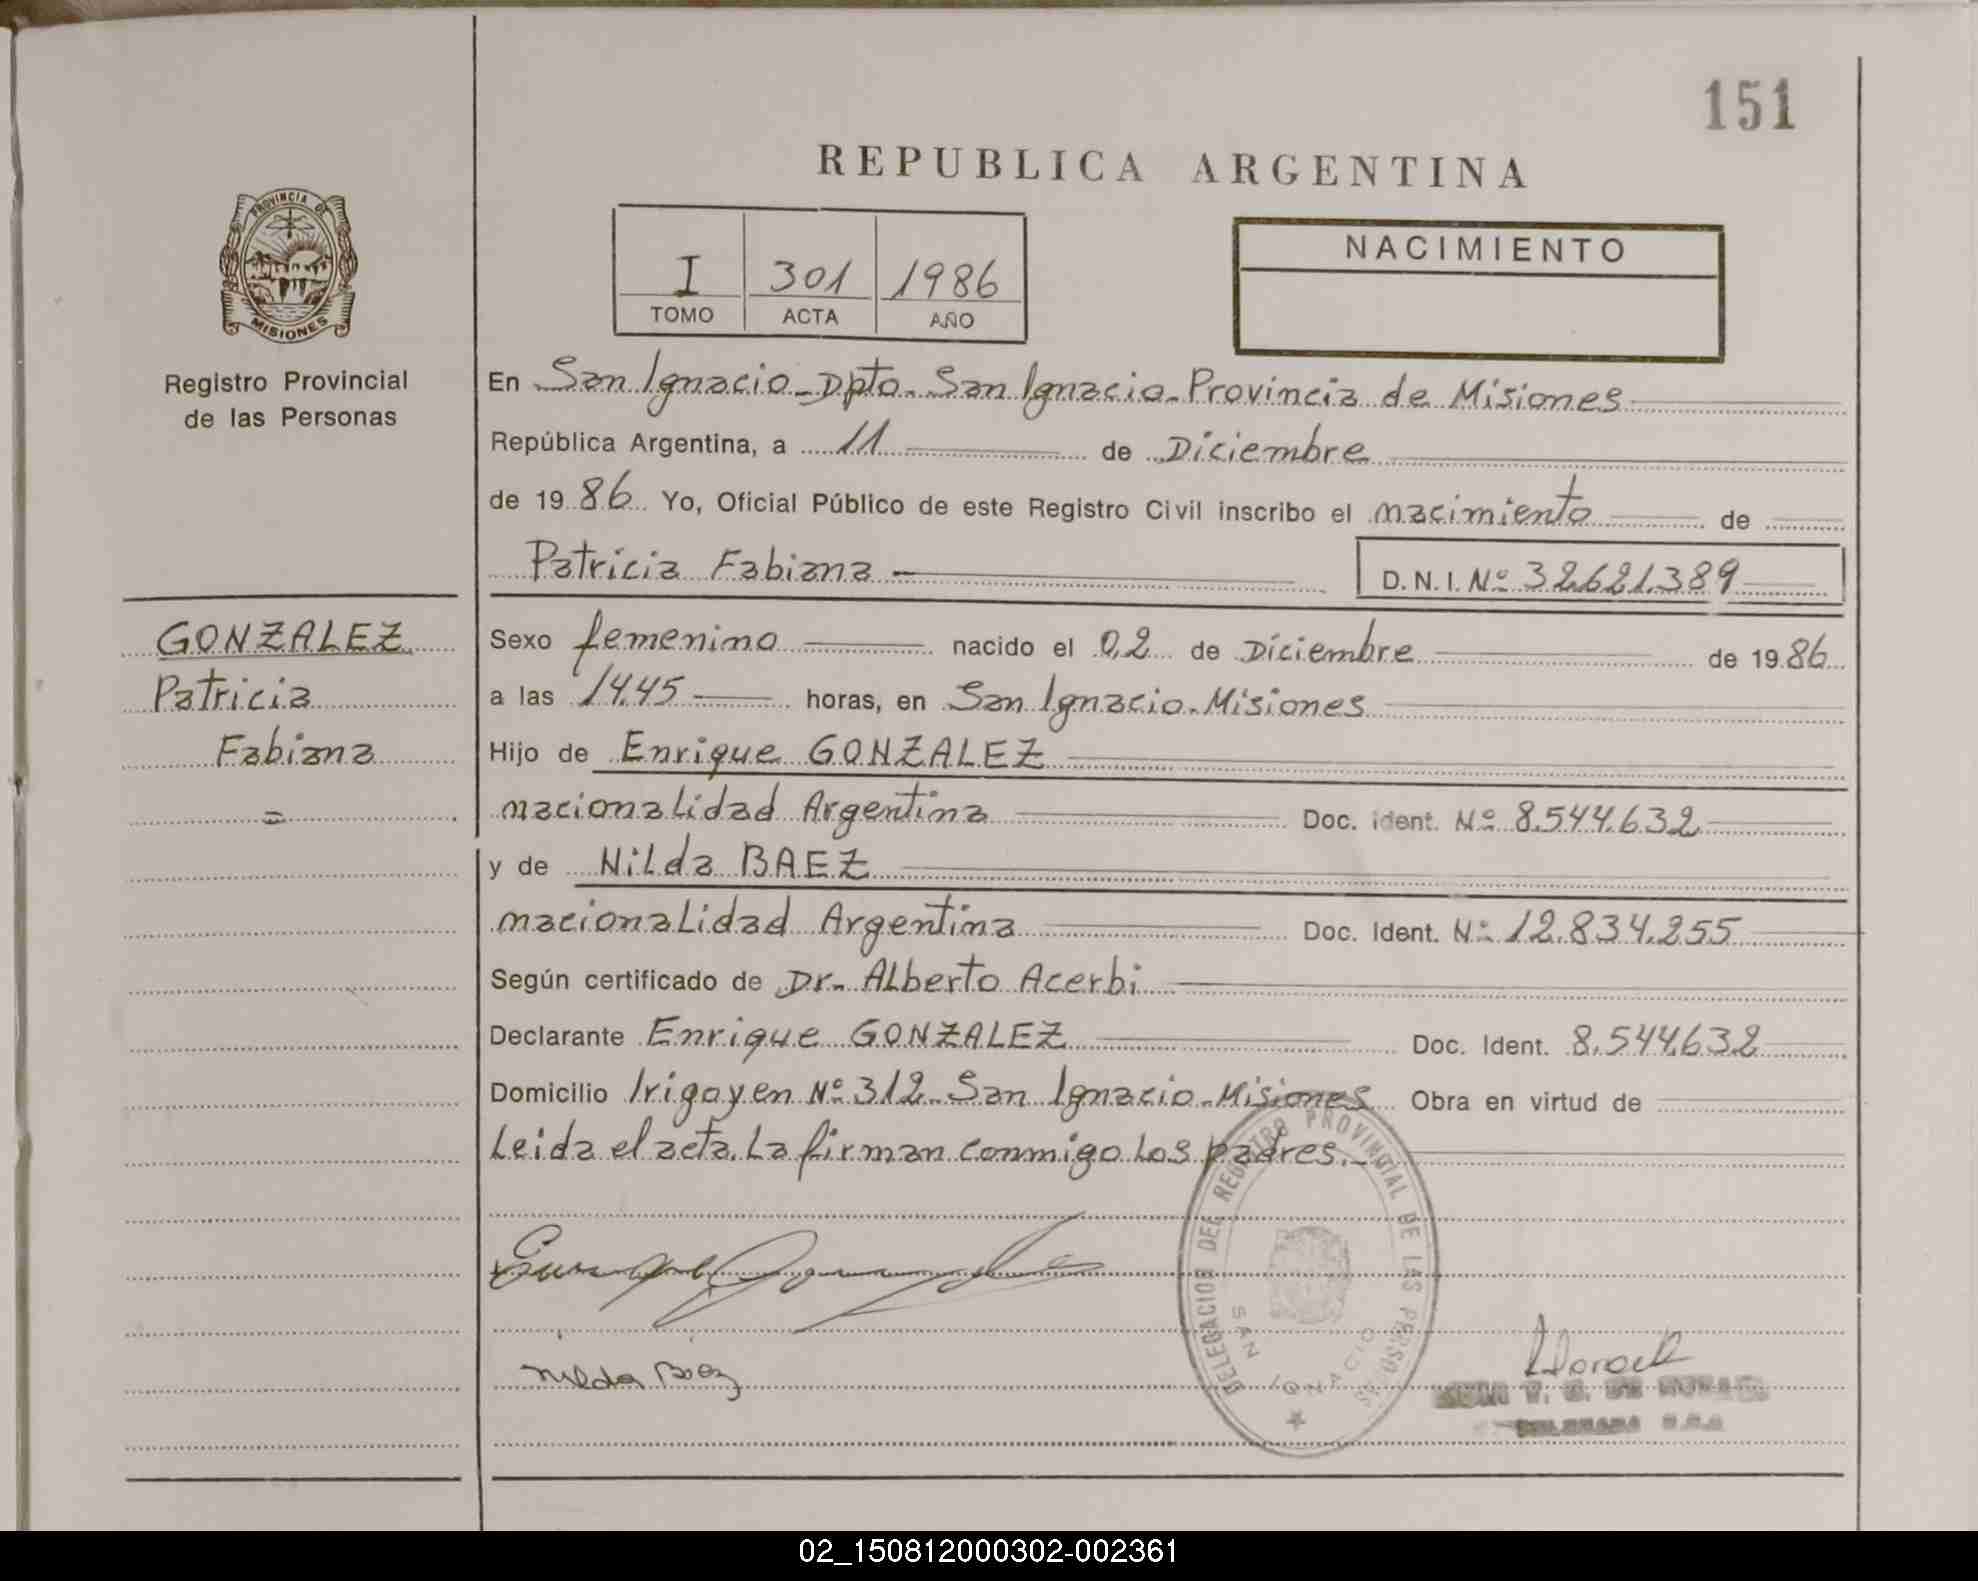 151
REPUBLICA ARGENTINA
PROVINCIA DE
MISIONES
Registro Provincial
de las Personas
I 301 1986
TOMO ACTA AÑO
NACIMIENTO
En San Ignacio - Dpto. San Ignacio - Provincia de Misiones
República Argentina, a 11 de Diciembre
de 19 86 Yo, Oficial Público de este Registro Civil inscribo el nacimiento de
Patricia Fabiana D.N.I. Nº 32.621.389
GONZALEZ
Patricia
Fabiana
=
Sexo femenino nacido el 02 de Diciembre de 19 86
a las 14.45 horas, en San Ignacio - Misiones
Hijo de Enrique GONZALEZ
nacionalidad Argentina Doc. ident. Nº 8.544.632
y de Nilda BAEZ
nacionalidad Argentina Doc. Ident. Nº 12.834.255
Según certificado de Dr. Alberto Acerbi
Declarante Enrique GONZALEZ Doc. Ident. 8.544.632
Domicilio Irigoyen Nº 312 - San Ignacio - Misiones Obra en virtud de
Leida el acta. La firman conmigo los padres. -
Enrique Gonzalez
Nilda Baez
DELEGACION DEL REGISTRO PROVINCIAL DE LAS PERSONAS
SAN IGNACIO
02_150812000302-002361